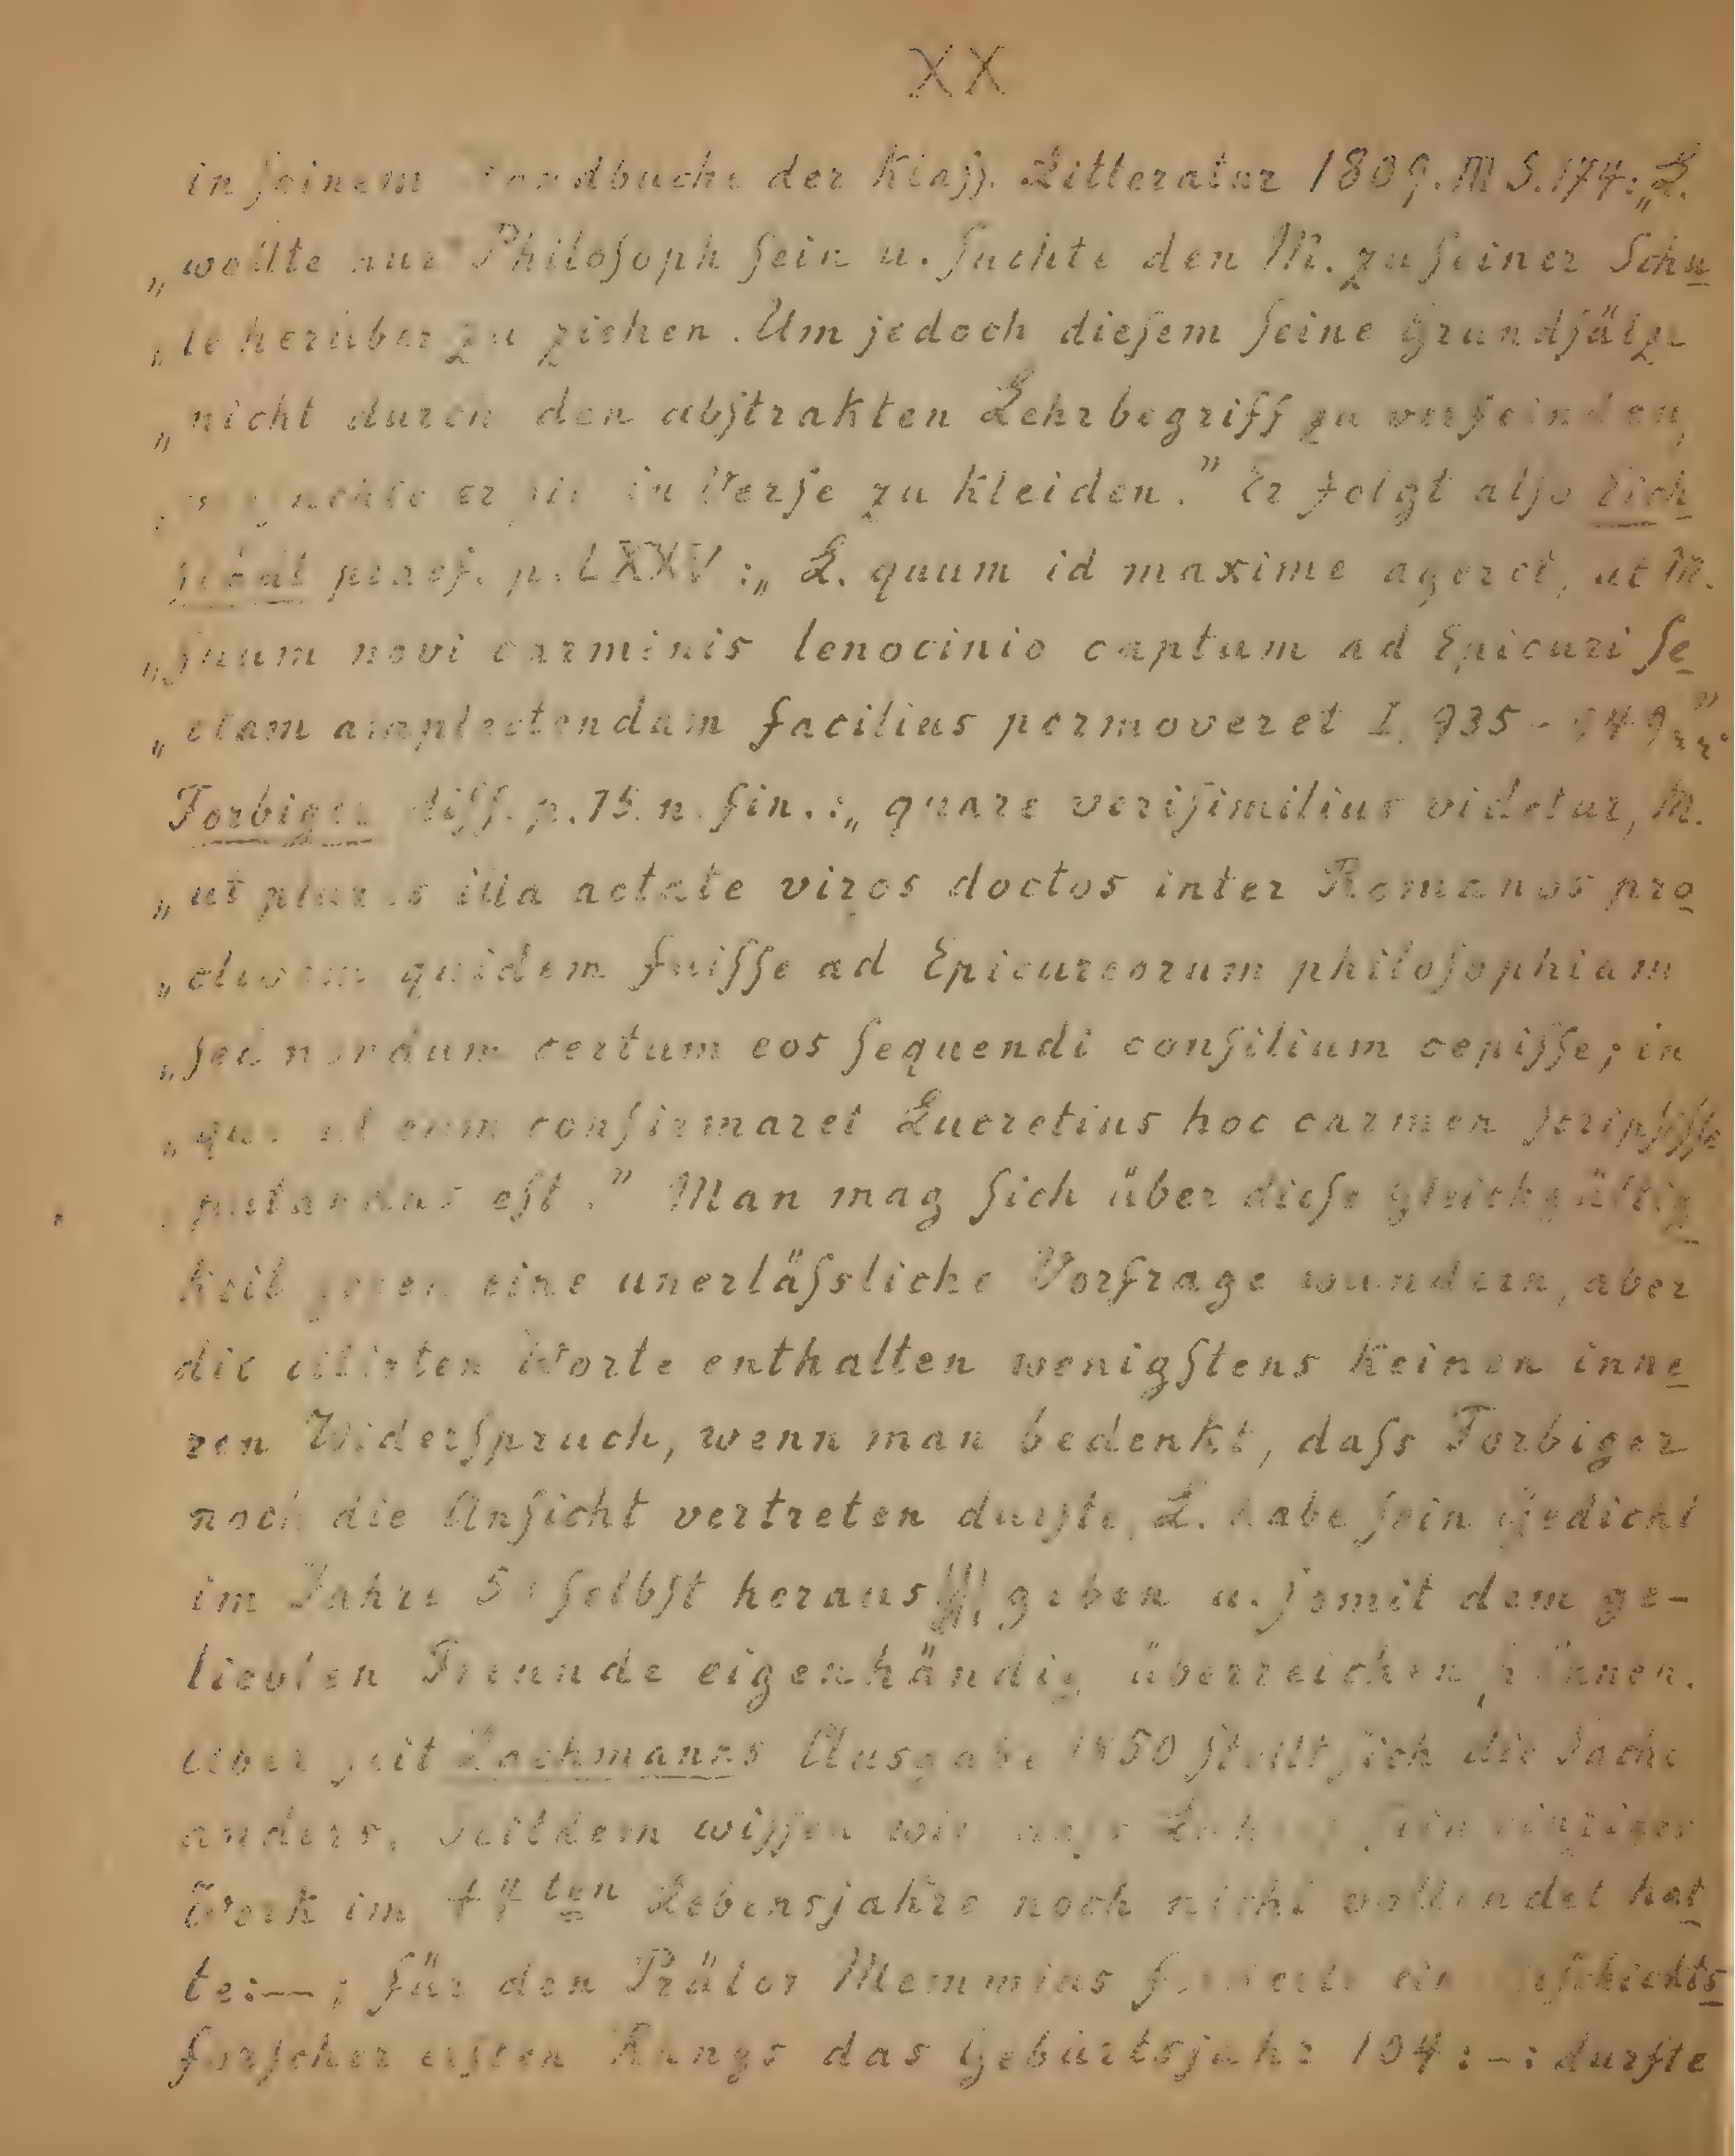 XX
in ſeinem Handbuche der klaſſ. Litteratur 1809. M S. 174: „L.
„wollte nur Philoſoph ſein u. ſuchte den M. zu ſeiner Schu
„le herüber zu ziehen. Um jedoch dieſem ſeine Grundſätze
„nicht durch den abſtrakten Lehrbegriff zu verfeinden,
er ſie in Verſe zu kleiden." Er folgt alſo Eich
ſtädt praef. p. LXXV: „L. quum id maxime ageret, ut M.
„ſuum novi carminis lenocinio captum ad Epicuri ſe
„ctam amplectendam facilius permoveret I. 935 - 949
Forbiger diſſ. p. 15. n. fin.: „quare veriſimilius videtur, M.
„ut plures illa aetate viros doctos inter Romanos pro
„clivem quidem fuiſſe ad Epicureorum philoſophiam
„ſed nondum certum eos ſequendi conſilium cepiſſe; in
„quo ut eum confirmaret Lucretius hoc carmen ſcripſiſſe
putandus eſt." Man mag ſich über dieſe Gleichgültig
keit gegen eine unerläſsliche Vorfrage wundern, aber
die citirten Worte enthalten wenigſtens keinen inne
ren Widerſpruch, wenn man bedenkt, daſs Forbiger
noch die Anſicht vertreten durfte, L. habe ſein Gedicht
im Jahre ſelbſt heraus geben u. ſomit dem ge-
liebten Freunde eigenhändig überreichen können.
Aber ſeit Lachmanns Ausgabe 1850 ſtellt ſich die Sache
anders. Seitdem wiſſen wir daſs ſein einziges
Werk im 44ten Lebensjahre noch nicht vollendet hat
te:—; für den Prätor Memmius forderte ein Geſchichts
forſcher erſten Rangs das Geburtsjahr 104:-: durfte